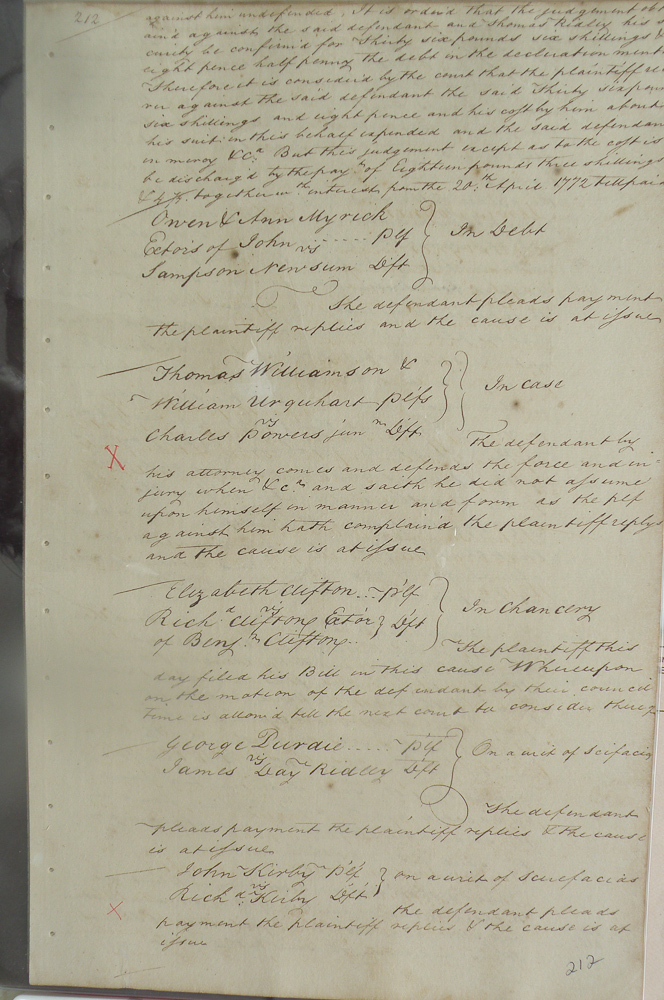 212
against him undefended. It is ordered that the judgement
and against the said defendant and Thomas Ridley his
be confirm'd for Thirty six pounds six shillings &
eight pence half penny the debt in the declaration ment
Therefore it is considerd by the court that the plaintiff re
ver against the said defendant the said Thirty six poun
six shillings and eight pence and his cost by him about
his suit in this behalf expended and the said defendan
in mercy &c.a But this judgement except as to the cost is
be discharg'd by the paym.t of Eighteen pounds three shillings
together w.th interest from the 20.th April 1772 till paid
Owen & Ann Myrick
Ectors of John ...... Plf } In Debt
vs
Sampson Newsum Dft
The defendant pleads payment
the plaintiff replies and the cause is at issue
Thomas Williamson &
William Urquhart plfs } In case
vs
Charles Powers jun.r Dft
The defendant by
X
his attorney comes and defends the force and in-
jury when &c.a and saith he did not assume
upon himself in manner and form as the plf
against him hath complaind the plaintiff reply
and the cause is at issue
Elizabeth Clifton ... Plf
vs } In Chancery
Rich.d Clifton Ector } Dft
of Benj.n Clifton
The plaintiff this
day filed his Bill in this cause Whereupon
on the motion of the defendant by their council
time is allow'd till the next court to consider there
George Purdie ..... Plf } On a writ of Scifacias
vs
James Day Ridley Dft
The defendant
pleads payment the plaintiff replies & the cause
is at issue
John Kirby Plf } on a writ of Scirefacias
vs
Rich.d Kirby Dft
the defendant pleads
X
payment the plaintiff replies & the cause is at
issue
212